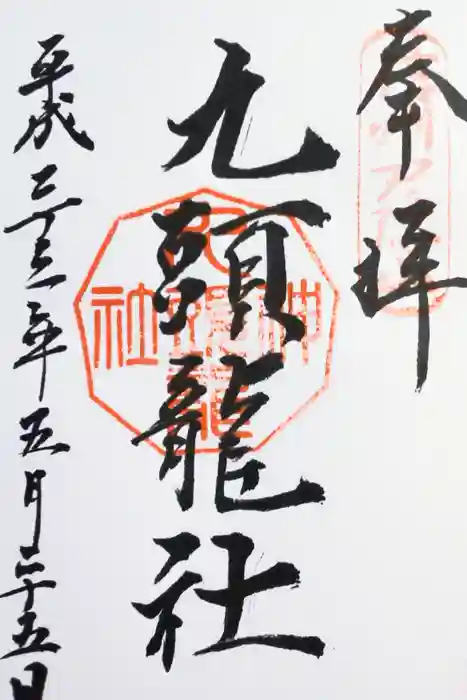 奉拝
九頭龍社
平成二十三年五月二十五日